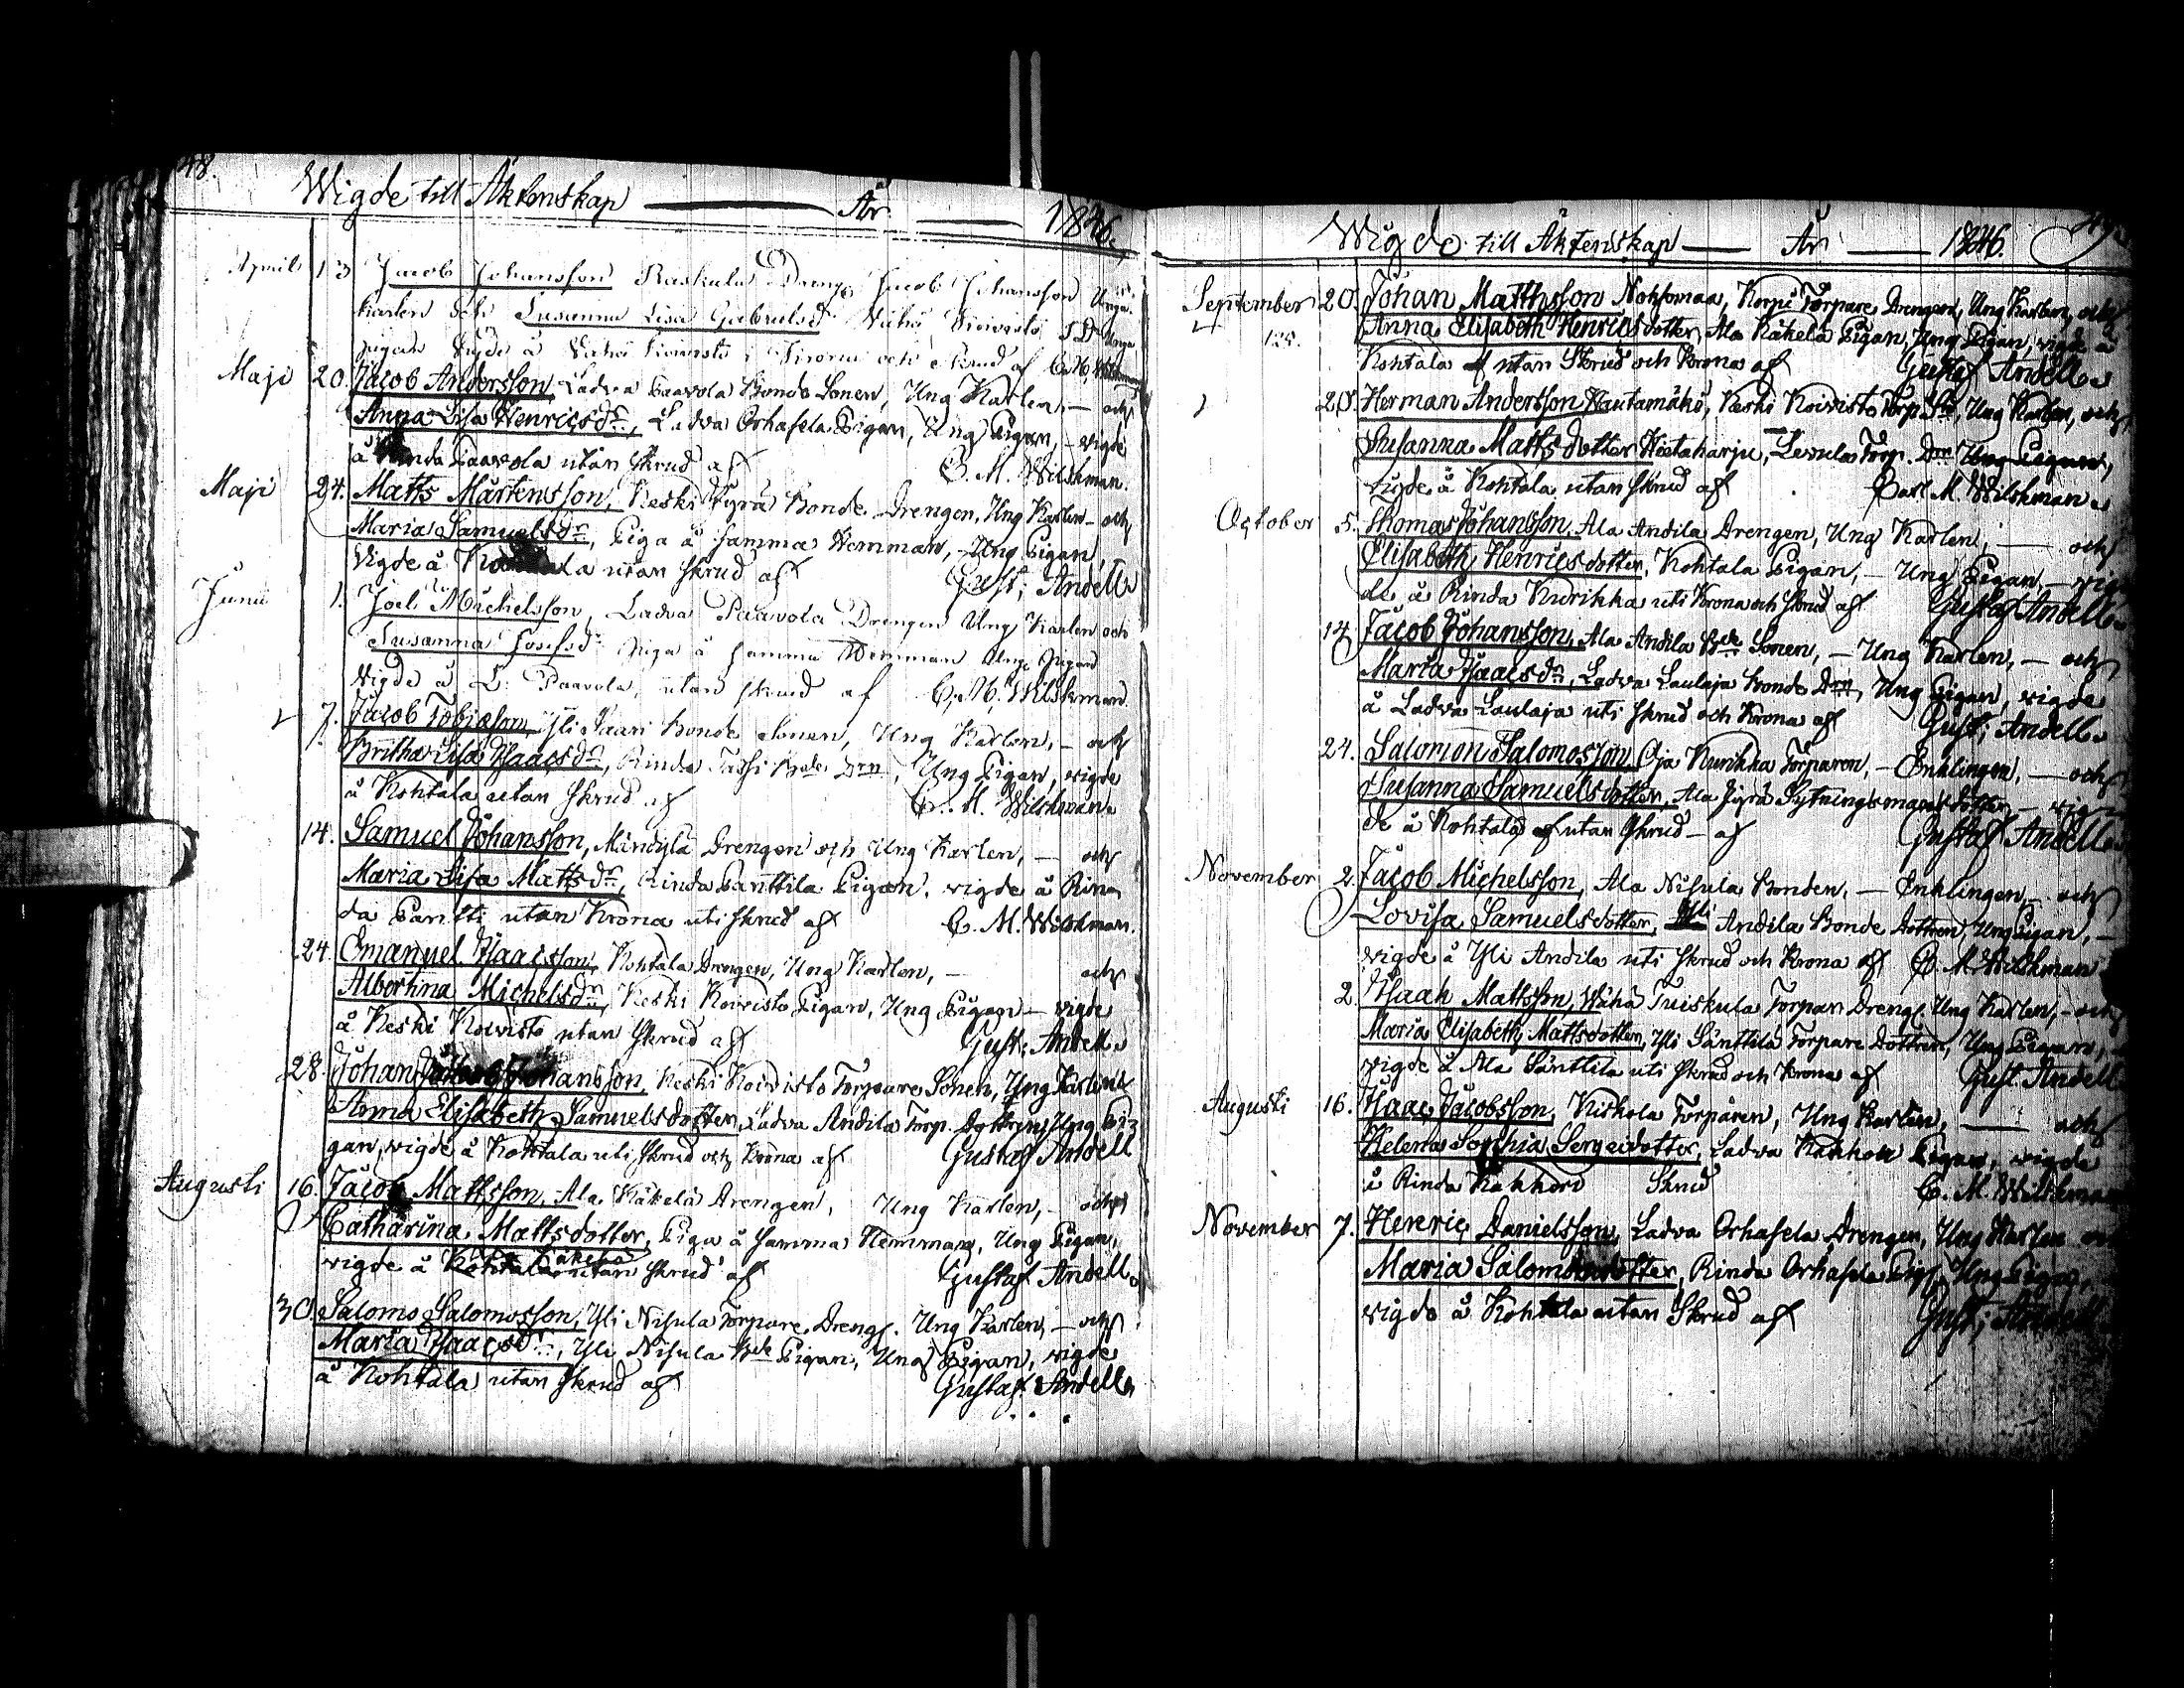 48.
Wigde till Äktenskap — År — 1846.
Aprill 13 Jacob Johansson Raskala Dreng Jacob Johansson Unge
karlen och Susanna Lisa Gabrielsd Koivisto Unga
pigan Vigde å Koivisto i Krona och Skrud af C. M. Wilskman
Maji 20. Jacob Andersson Ladva Paavola Bonde Sonen, Ung Karlen, — och
Anna Lisa Henricsdr, Ladva Orhasela Pigan, Ung Pigan, — vigde
å Rinda Paavola utan skrud af C. M. Wilskman.
Maji 24. Matts Mårtensson, Keski Pyrä Bonde Drengen, Ung Karlen — och
Maria Samuelsdr, Piga å samma Hemman, — Ung Pigan
Vigde å Kohtala utan skrud af Gust; Andell
Junii 1. Joel Michelsson, Ladva Paavola Drengen Ung Karlen och
Susanna Josefsd Piga å samma Hemman Unga Pigan
Vigde å L. Paavola, utan skrud af C. M. Wilskman
7. Jacob Tobiasson Yli Saari Bonde Sonen, Ung Karlen, — och
Britha Lisa Isaacsdr, Rinda Tassi Drn, Ung Pigan, vigde
å Kohtala utan skrud af C. M. Wilskman
14. Samuel Johansson, Mändylä Drengen och Ung Karlen, — och
Maria Lisa Mattsdr, Rinda Panttila Pigan, vigde å Rin
da Pantti utan Krona uti skrud af C. M. Wilskman.
24. Emanuel Isaacsson, Kohtala Drengen, Ung Karlen, — och
Albertina Michelsdr, Keski Koivisto Pigan, Ung Pigan — vigde
å Keski Koivisto utan skrud af Gust; Andell
28. Johan Johansson, Keski Koivisto Torpare Sonen, Ung Karlen
Anna Elisabeth Samuelsdotter, Ladva Andila Torp. Dottren, Ung Pi
gan, vigde å Kohtala uti skrud och Krona af Gustaf Andell
Augusti 16. Jacob Mattsson, Ala Käkelä Drengen, Ung Karlen, — och
Catharina Mattsdotter, Piga å samma Hemman, Ung Pigan,
Ala Käkelä
vigde å Kohtala utan skrud af Gustaf Andell
30. Salomo Salomosson, Yli Nisula Torpare Dreng. Ung Karlen, — och
Maria Isaacsdr, Yli Nisula Pigan, Ung Pigan, vigde
å Kohtala utan skrud af Gustaf Andell
Wigde till Äktenskap — År — 1846.
September 20. Johan Matthsson Nohsomaa, Korpi Torpare Drengen, Ung Karlen, och
Anna Elisabeth Henricsdotter, Ala Käkelä Pigan, Ung Pigan, vigde å
Kohtala utan Skrud och Krona af Gustaf Andell
20. Herman Andersson Hautamäki, Keski Koivisto Torp. Son, Ung Karlen, och
Susanna Mattsdotter Hietaharju, Torp. Drn Ung Pigan,
vigde å Kohtala utan skrud af Carl M. Wilskman
October 5. Thomas Johansson, Ala Andila Drengen, Ung Karlen, — och
Elisabeth Henricsdotter, Kohtala Pigan, — Ung Pigan — vig
de å Rinda Kurikka uti Krona och skrud af Gustaf Andell
14. Jacob Johansson, Ala Andila Sonen, — Ung Karlen, — och
Maria Isaacsdr, Ladva Laulaja Bonde Drn, Ung Pigan, vigde
å Ladva Laulaja uti skrud och Krona af Gust; Andell
24. Salomon Salomosson Oja Kurikka Torparen, — Enklingen, — och
Susanna Samuelsdotter, Ala Pyrä Sytningsmansdotter — vig
de å Kohtala utan Skrud — af Gustaf Andell
November 2. Jacob Michelsson, Ala Nisula Bonden, — Enklingen, och
Lovisa Samuelsdotter, Yli Andila Bonde Dottren, Ung Pigan, —
vigde å Yli Andila uti skrud och Krona af C. M. Wilskman
2. Isaak Mattsson, Wähä Tuiskula Torpare Dreng. Ung Karlen, — och
Maria Elisabeth Mattsdotter, Yli Sänttilä Torpare Dottren, Ung Pigan,
vigde å Ala Sänttila uti skrud och Krona af Gust Andell
Augusti 16. Isaac Jacobsson, Kiskola Torparen, Ung Karlen, — och
Helena Sophia Sergeidotter, Ladva Kakkori Pigan, vigde
å Rinda Kakkori Skrud C. M. Wilskman
November 7. Henric Danielsson, Ladva Orhasela Drengen, Ung Karlen
Maria Salomonsdotter, Rinda Orhasela Pig. Ung Pigan,
vigde å Kohtala utan Skrud af Gust; Andell